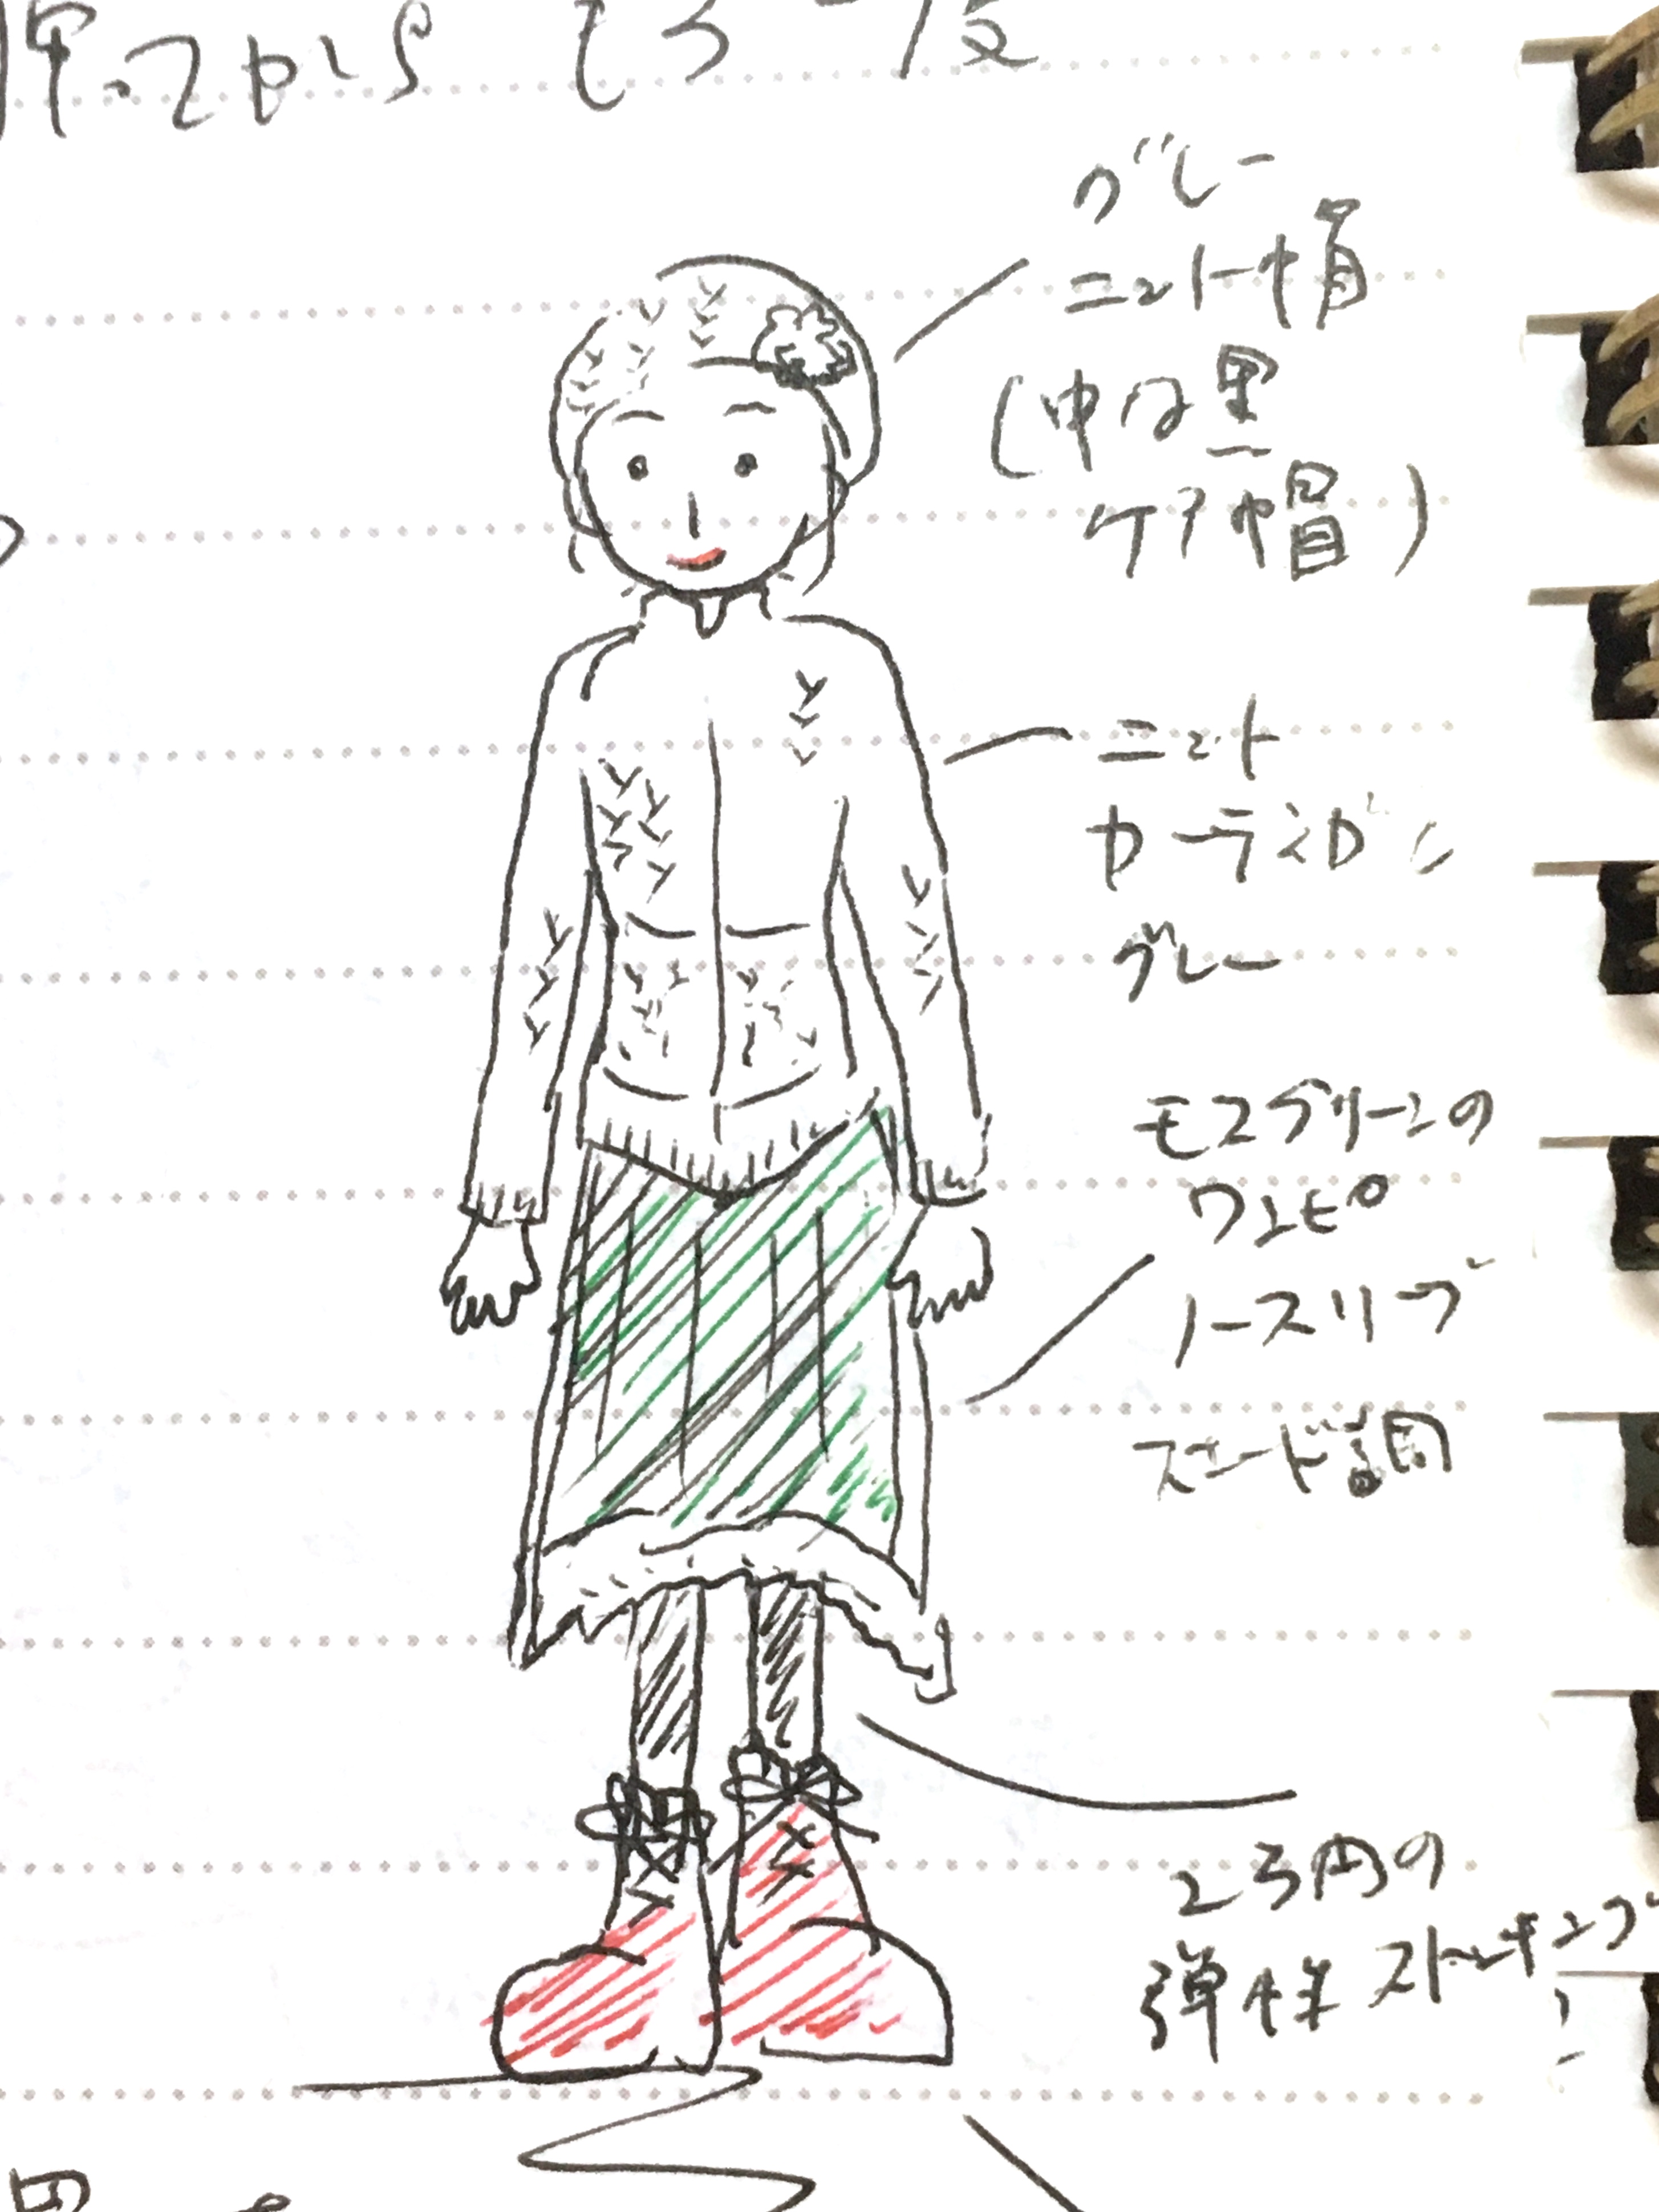 ってから もう一度
グレー
ニット帽
(中は黒
ケア帽)
ニット
カーディガン
グレー
モスグリーンの
ワンピ
ノースリーブ
スエード調
2万円の
弾性ストッキング